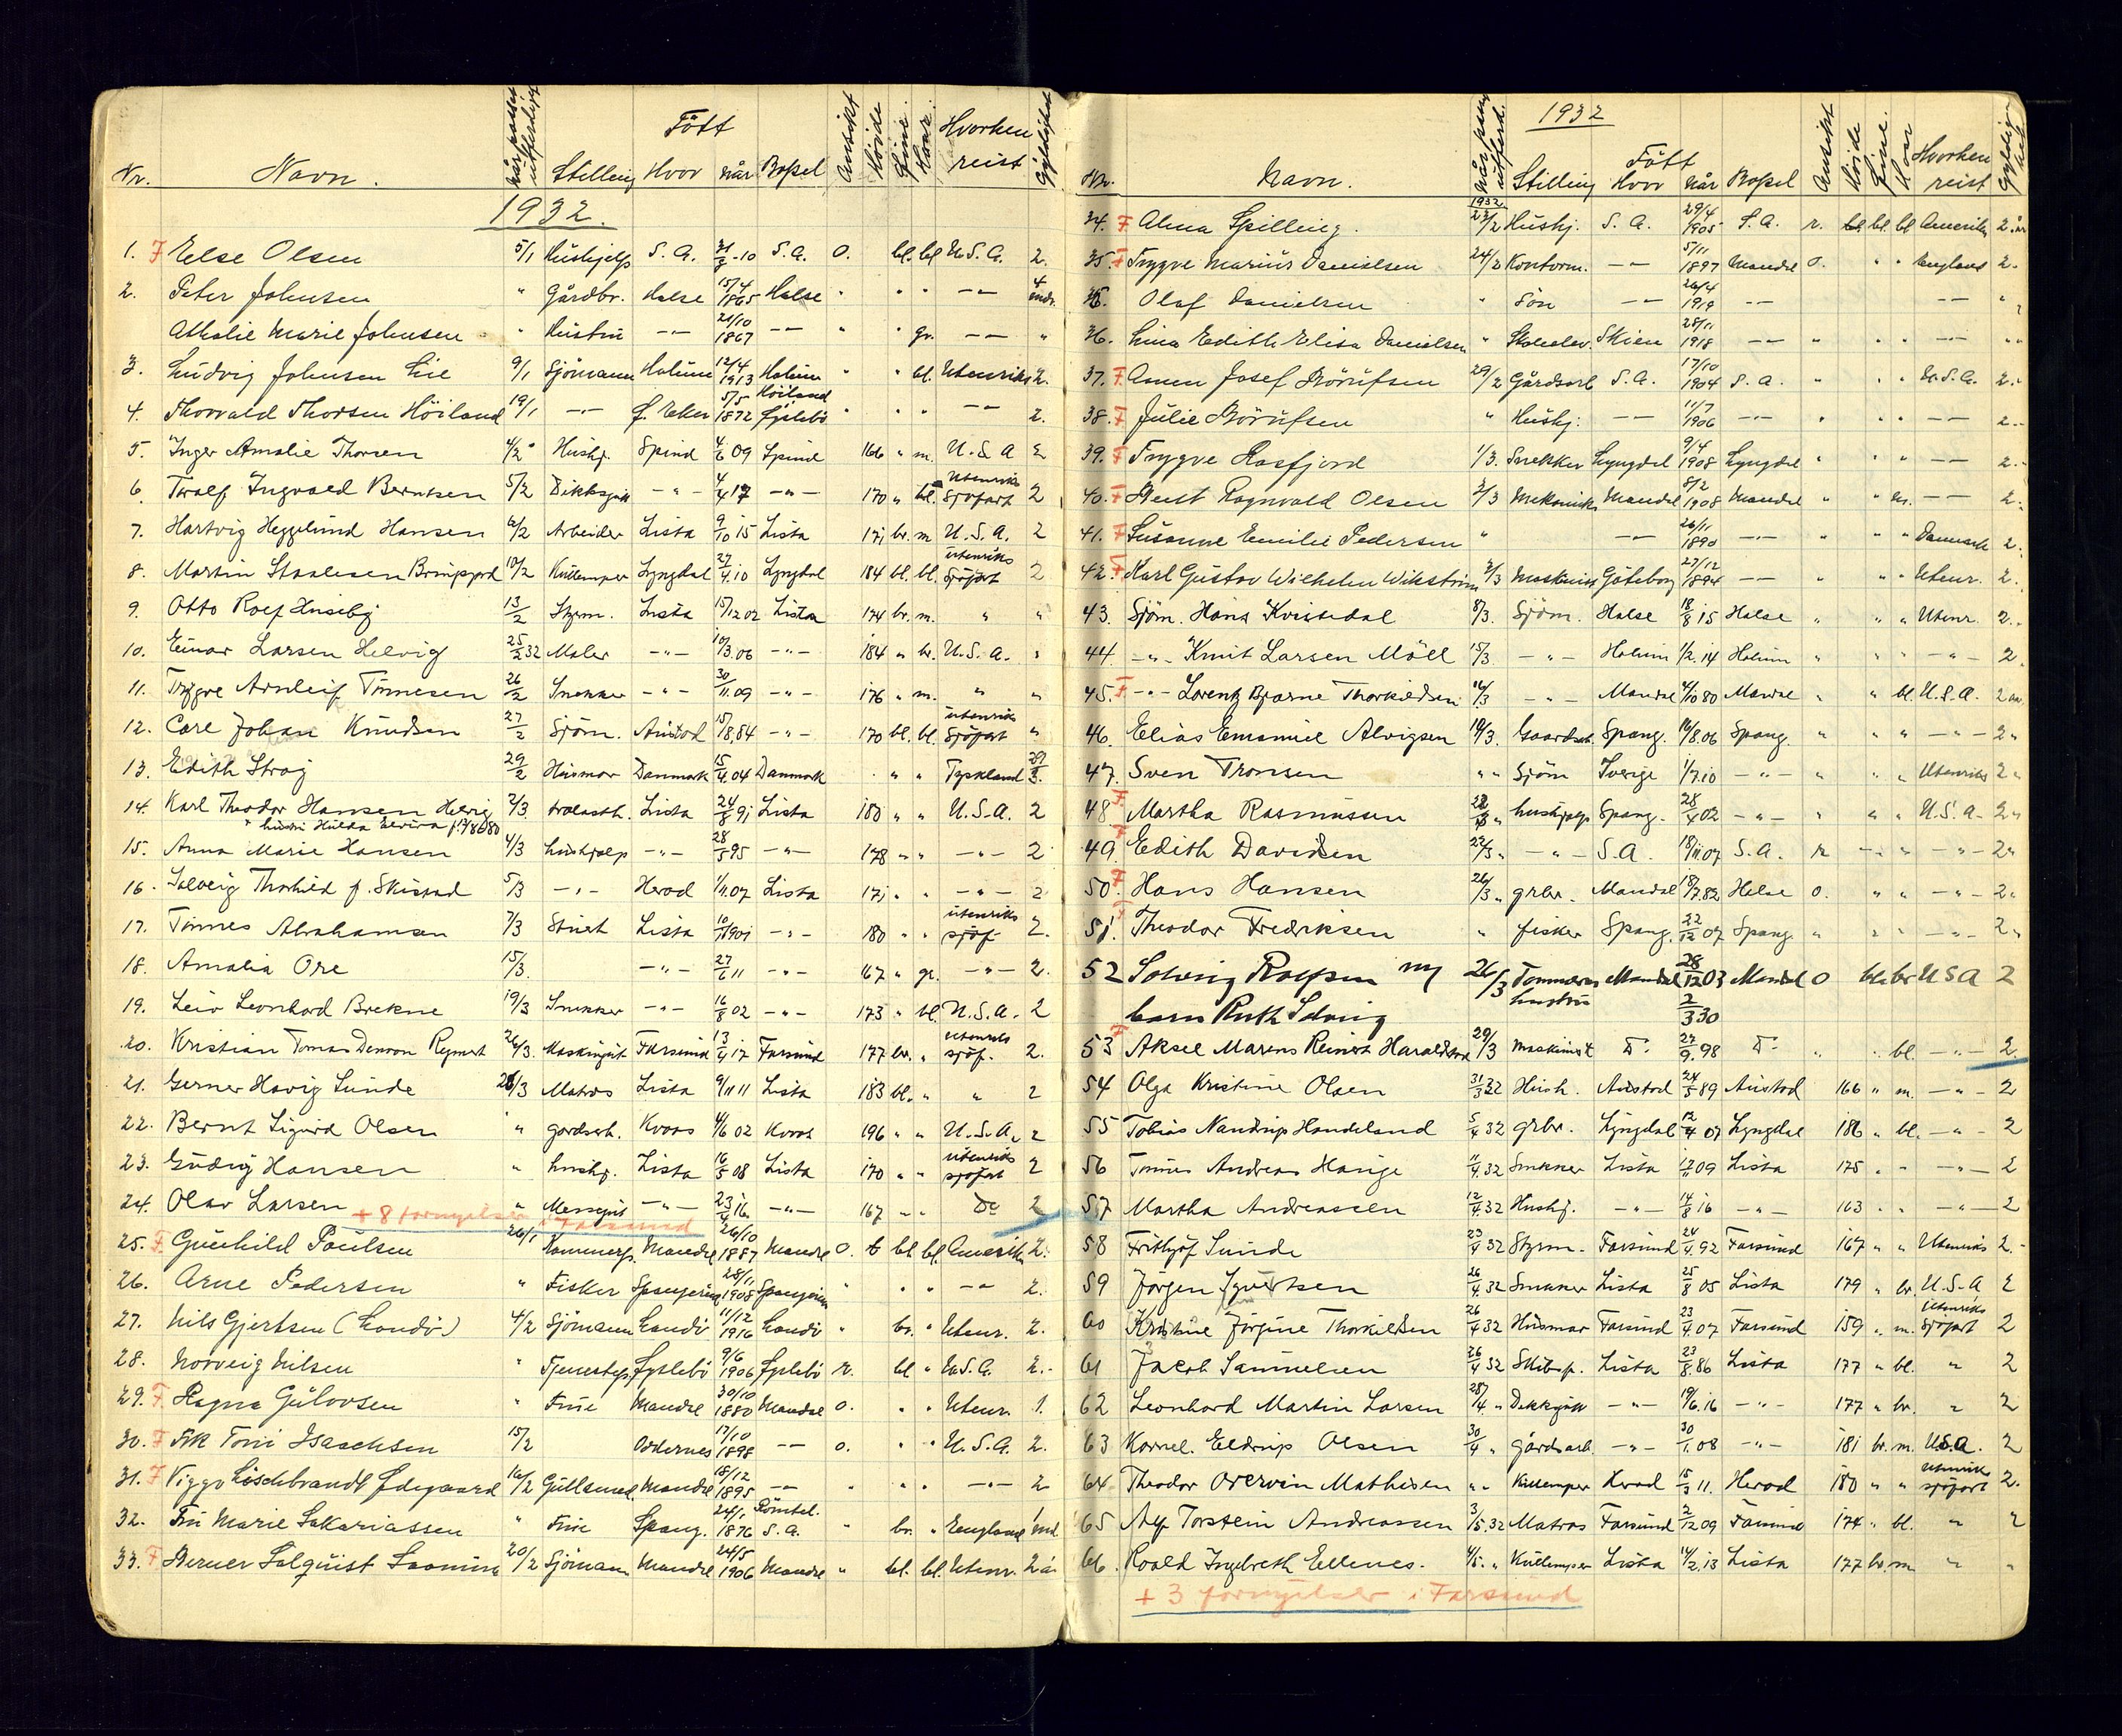 Nr. Navn. Når passet utferdiget Stilling Født Hvor Når Bopel Ansikt Høide Øine Haar Hvorhen reist Gyldighet
1932.
1. F Else Olsen 5/1 Hushjelp S. A. 31/8-10 S. A. O. bl. bl U.S.A. 2.
2. Peter Johnsen " Gårdbr. Halse 15/4 1865 Halse " " " -"- 4 mdr.
Athalie Marie Johnsen " Hustru -"- 21/10 1867 -"- " " gr. -"- "
3. Ludvig Johnsen Lie 9/1 Sjömann Holum 12/4 1913 Holum " " bl. Utenriks 2.
4. Thorvald Thorsen Höiland 19/1 -"- f. Eken 5/5 1872 Höiland Öislebö " " " -"- 2.
5. Inger Amalie Thorsen 4/2 Hushj. Spind 4/6 09 Spind 166 " m. U.S.A 2
6. Torolf Ingvald Berntsen 5/2 Dekksgutt -"- 4/4 17 -"- 170 " bl. Utenriks Sjöfart 2
7. Hartvig Hegglund Hansen 6/2 Arbeider Lista 9/10 15 Lista 171 br. m U.S.A. 2
8. Martin Staalesen Bringsjord 10/2 Kullemper Lyngdal 27/4.10 Lyngdal 184 bl. bl. utenriks Sjöfart 2
9. Otto Rolf Huseby 13/2 Styrm. Lista 15/12 02 Lista 174 br. m. " "
10. Einar Larsen Helvig 25/2 32 Maler -"- 10/3.06 -"- 184 " br. U.S.A. "
11. Trygve Arnleif Tönnesen 26/2 Snekker -"- 30/11.09 -"- 176 " m. " "
12. Carl Johan Knudsen 27/2 Sjöm. Austad 15/8.84 -"- 170 bl. bl. utenriks Sjöfart "
13. Edith Strag 29/2 Husmor Danmark 15/4.04 Danmark " " Tyskland 29/3.
14. Karl Theodor Hansen Helvig 2/3. Lista 24/8 91 Lista 180 " " U.S.A. 2
" hustru Hulda Elvira
15. Anna Marie Hansen 4/3 hushjelp -"- 28/5 95 -"- 178 " " -"- 2
16. Solveig Thorhild f. Skistad 5/3 -"- Herad 1/11.07 Lista 171 " " -"- 2
17. Tönnes Abrahamsen 7/3 Stuert Lista 10/1 1901 -"- 180 " " utenriks sjöf. 2.
18. Amalia Ore 15/3. -"- 27/6 11 -"- 167 " gr. -"- 2.
19. Leiv Leonhard Brekne 19/3 Snekker -"- 16/8 02 -"- 173 " bl. U.S.A. 2
20. Kristian Tomas Reymert 26/3. Maskinist Farsund 13/4 17 Farsund 177 br. " utenriks sjöf. 2.
21. Gerner Havig Sunde 26/3 Matros Lista 9/11 11 Lista 183 bl. " " 2
22. Bernt Sigurd Olsen " gardsarb. Kvaas 4/6 02 Kvaas 196 " " U.S.A. 2
23. Gudrig Hansen " hushj. Lista 16/5 08 Lista 170 " " utenriks sjöfart 2
24. Olav Larsen " Messgutt -"- 23/4 16 -"- 167 " " Do 2
+ 8 fornyelser i Farsund
25. F Gunhild Poulsen 26/1 Mandal 26/10 1887 Mandal O. bl bl. Amerika 2.
26. Arne Pedersen " Fisker Spangereid 28/11 1908 Spangereid " " " -"- 2.
27. Nils Gjertsen (Landö) 4/2 Sjömann Landö 11/12 1916 Landö " br. " Utenr. 2.
28. Norveig Nilsen " Öyslebö 9/6 1906 Öyslebö r. bl " U.S.A. 2.
29. F Ragna Gulovsen " Frue Mandal 30/10 1880 Mandal O. " " Utenr. 1.
30. F Frk Toni Isachsen 15/2 Oddernes 17/10 1898 -"- O. " " U.S.A. 2.
31. F Viggo Ødegaard 16/2 Gullsmed. Mandal 18/12 1895 -"- " " " -"- 2
32. Fru Marie Sakariassen " Frue Spang. 24/1 1876 S.A. " br. " England 1 md.
33. F Werner Salquist 20/2 Sjömann Mandal 24/5 1906 Mandal " bl. bl. Utenr. 2 år
1932
Nr. Navn. Når passet utferd. Stilling Født Hvor Når Bopel Ansikt Høide Øine. Haar Hvorhen reist Gyldighet
34. F Alma Spilling. 1932 23/2 Hushj. S. A. 29/4 1905 S. A. r. bl. bl Amerika 2 år
35. F Trygve Marius Danielsen 24/2 Kontorm. -"- 5/11 1897 Mandal O. " " England 2.
Olaf Danielsen " Sön -"- 26/4 1919 -"- -"- "
36. Lina Edith Elisa Danielsen " Skoleelev. Skien 28/11 1918 -"- " " " -"- "
37. F Josef Börufsen 29/2 Gårdsarb S.A. 17/10 1904 S.A. " " " U.S.A. 2.
38. F Julie Börufsen " Hushj. -"- 11/7 1906 -"- " " " -"- 2.
39. F Trygve Rosfjord 1/3. Snekker Lyngdal 9/4 1908 Lyngdal " " " -"- 2.
40. F Ragnvald Olsen 2/3 Mekanik. Mandal 8/2 1908 Mandal " " m. -"- 2.
41. F Susanne Emilie Pedersen " -"- 26/11 1890 -"- " " " Danmark 2.
42. F Karl Gustav Wilhelm Wikström 3/3 Maskinist Göteborg 27/12 1894 -"- " " " Utenr. 2.
43. Sjöm. Hans Kvisedal 8/3. Sjöm. Halse 18/8 15 Halse " " " Utenr. 2.
44. -"- Knut Larsen Möll 15/3 -"- Holum 1/2.14 Holum " " " -"- 2.
45. F -"- Lorentz Bjarne Thorkildsen 16/3 -"- Mandal 4/10 80 Mandal " " bl. U.S.A. 2 aar
46. Elias Emanuel Alvigsen 19/3. Gaardsarb. Spang. 16/8.06 Spang. " " " -"- 2"
47. Sven Tronsen " " Sjöm Sverige 1/7.10 -"- " " " Utenriks 2"
48. F Martha Rasmussen hushjelp Spang. 28/4 02 -"- " " " U.S.A. 2"
49. F Edith Davidsen 22/3" -"- S.A. 18/11.07 S.A. r -"- " -"- 2"
50. F Hans Hansen 26/3" grbr. Mandal 18/7.82 Halse O. " " -"- 2"
51. F Theodor Fredriksen " fisker Spang. 22/12 07 Spang. " " " -"- 2"
52 Solveig Rolfsen ny 26/3 Mandal 28/12 03 Mandal O bl. br U S A 2
hustru
barn Ruth Solveig 2/3 30
53 F Aksel Marens Reinert Haraldstad 29/3 Maskinist Do 27/9.98 Do " " bl. -"- 2
54 Olga Kristine Olsen 31/3 32 Hush. Austad 24/5 89 Austad 166 " m. -"- 2
55 Tobias Nandrup Handeland 5/4 32 grbr. Lyngdal 12/4 07 Lyngdal 186 " bl. -"- 2
56 Tönnes Andreas Hauge 11/4.32 Snekker Lista 09 Lista 175 " " -"- 2
57 Martha Andreassen 12/4.32 Hushj. -"- 14/8 16 -"- 163 " " -"- 2
58 Frithjof Sunde 23/4 32 Styrm. Farsund 24/4.92 Farsund 167 " " Utenriks 2.
59 Jörgen Syvertsen 26/4 32 Snekker Lista 25/8 05 Lista 179 " br. U.S.A 2
60 Kristine Jorgine Thorkildsen 26/4 32 Husmor Farsund 23/4.07 Farsund 159 " m. utenriks sjöfart 2
61 Jacob Samuelsen 26/4 32 Lista 23/8.86 Lista 177 " bl. " 2
62 Leonhard Martin Larsen 28/4 " Dekksgutt -"- 19/6.16 -"- 177 " br. " 2
63 Kornel. Eldrup Olsen 30/4 " gårdsarb. -"- 30/1.08 -"- 181 br. m. U.S.A. 2
64 Theodor Overvin Mathisen " " Kullemper Herad 15/3 11. Herad 180 " " utenriks sjöfart 2.
65 Alf Torstein Andreassen 3/5.32 Matros Farsund 2/12 09 Farsund 174 " bl. " 2
66. Roald Ingbreth Ellenes. 4/5. " Kullemper Lista 14/2.13 Lista 177 br. m " "
+ 3 fornyelser i Farsund